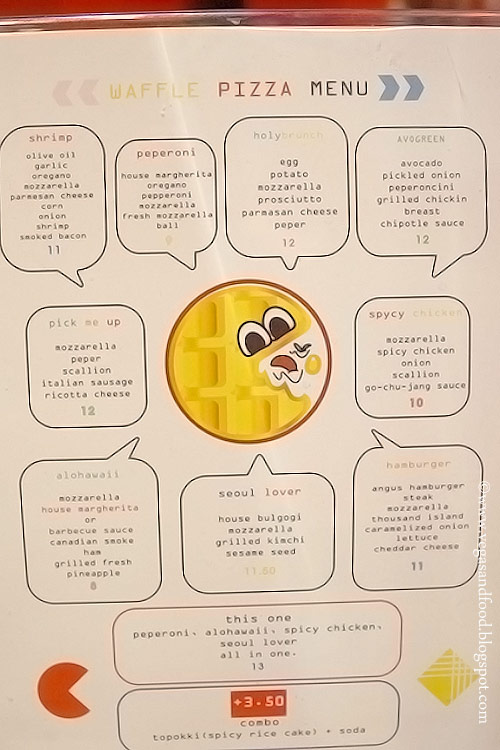 WAFFLE PIZZA MENU
shrimp
olive oil
garlic
oregano
mozzarella
parmesan cheese
corn
onion
shrimp
smoked bacon
11
peperoni
house margherita
oregano
pepperoni
mozzarella
fresh mozzarella
ball
9
holybrunch
egg
potato
mozzarella
prosciutto
parmasan cheese
peper
12
AVOGREEN
avocado
pickled onion
peperoncini
grilled chickin
breast
chipotle sauce
12
pick me up
mozzarella
peper
scallion
italian sausage
ricotta cheese
12
spycy chicken
mozzarella
spicy chicken
onion
scallion
go-chu-jang sauce
10
alohawaii
mozzarella
house margherita
or
barbecue sauce
canadian smoke
ham
grilled fresh
pineapple
8
seoul lover
house bulgogi
mozzarella
grilled kimchi
sesame seed
11.50
hamburger
angus hamburger
steak
mozzarella
thousand island
caramelized onion
lettuce
cheddar cheese
11
this one
peperoni、alohawaii、spicy chicken、
seoul lover
all in one.
13
+3.50
combo
topokki(spicy rice cake) + soda
©www.vegasandfood.blogspot.com